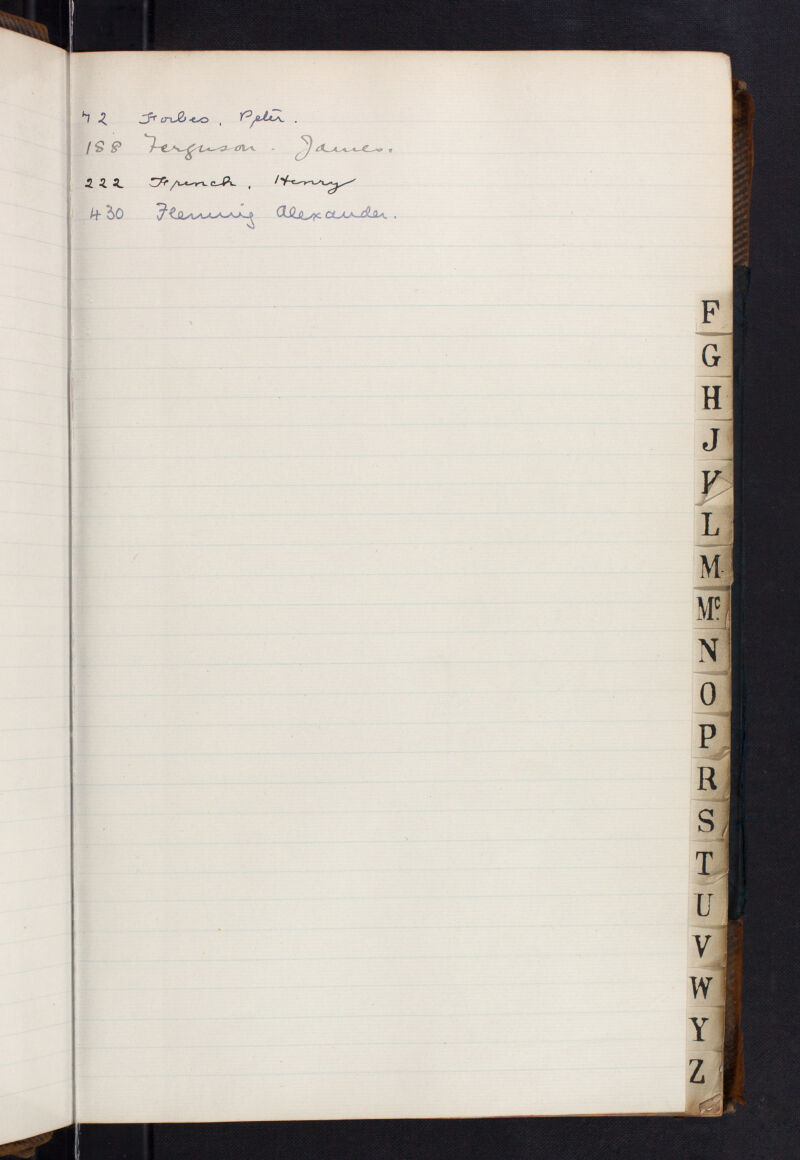 72 Forbes, Peter.
188 Ferguson. James.
222 French, Henry
430 Fleming Alexander.
F
G
H
J
K
L
M
Mc
N
O
P
R
S
T
U
V
W
Y
Z